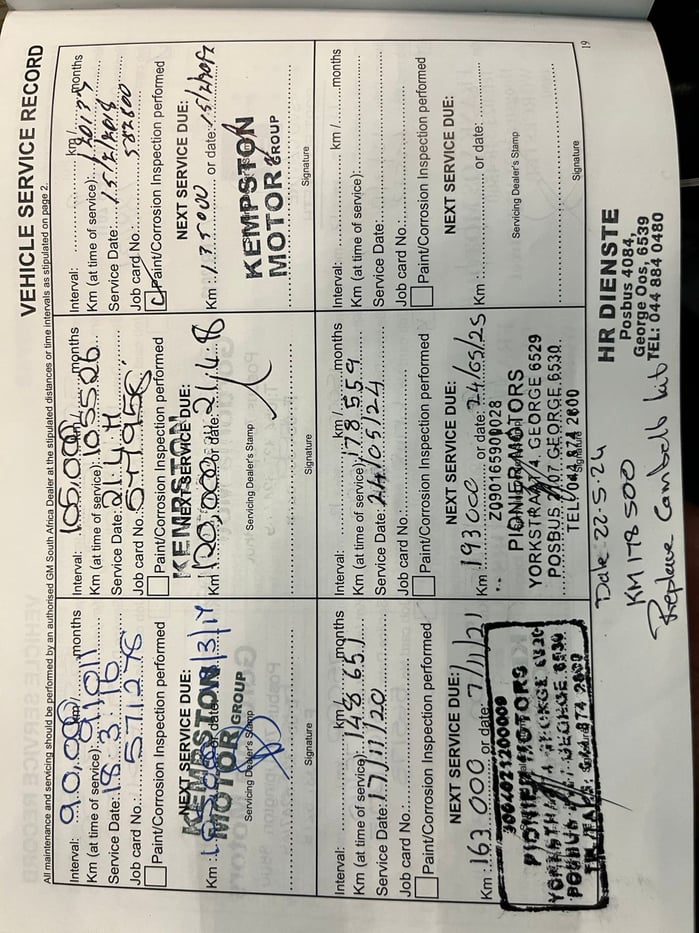 VEHICLE SERVICE RECORD
All maintenance and servicing should be performed by an authorised GM South Africa Dealer at the stipulated distances or time intervals as stipulated on page 2.
Interval: 90,000 km/ months
Km (at time of service): 91,011
Service Date: 18.3.16
Job card No.: 571276
Paint/Corrosion Inspection performed
NEXT SERVICE DUE:
KEMPSTON
MOTOR GROUP
Km : or date:
Servicing Dealer's Stamp
Signature
Interval: 105,000 km/ months
Km (at time of service): 105526
Service Date: 21.4.17
Job card No.: 577956
Paint/Corrosion Inspection performed
KEMPSTON
NEXT SERVICE DUE:
Km 120,000 or date: 21.4.18
Servicing Dealer's Stamp
Signature
Interval: km / months
Km (at time of service): 120137
Service Date: 15/2/2018
Job card No.: 582600
Paint/Corrosion Inspection performed
NEXT SERVICE DUE:
Km : 135000 or date: 15/2/2019
KEMPSTON
MOTOR GROUP
Signature
Interval: km/ months
Km (at time of service): 148 651
Service Date: 17/11/20
Job card No.:
Paint/Corrosion Inspection performed
NEXT SERVICE DUE:
Km : 163 000 or date: 7/11/21
3064021200009
PIONIER MOTORS
Interval: km/ months
Km (at time of service): 178 559
Service Date: 24/05/24
Job card No.:
Paint/Corrosion Inspection performed
NEXT SERVICE DUE:
Km : 193000 or date: 24/05/25
Z0901659000028
PIONIER MOTORS
YORKSTRAAT 74, GEORGE 6529
POSBUS 2107 GEORGE 6530
Signature
TEL: 044 874 2600
Interval: km / months
Km (at time of service):
Service Date:
Job card No.:
Paint/Corrosion Inspection performed
NEXT SERVICE DUE:
Km : or date:
Servicing Dealer's Stamp
Signature
Date: 22-5-24
KM 178 500
Replace Cambelt kit
HR DIENSTE
Posbus 4084,
George Oos, 6539
TEL: 044 884 0480
19